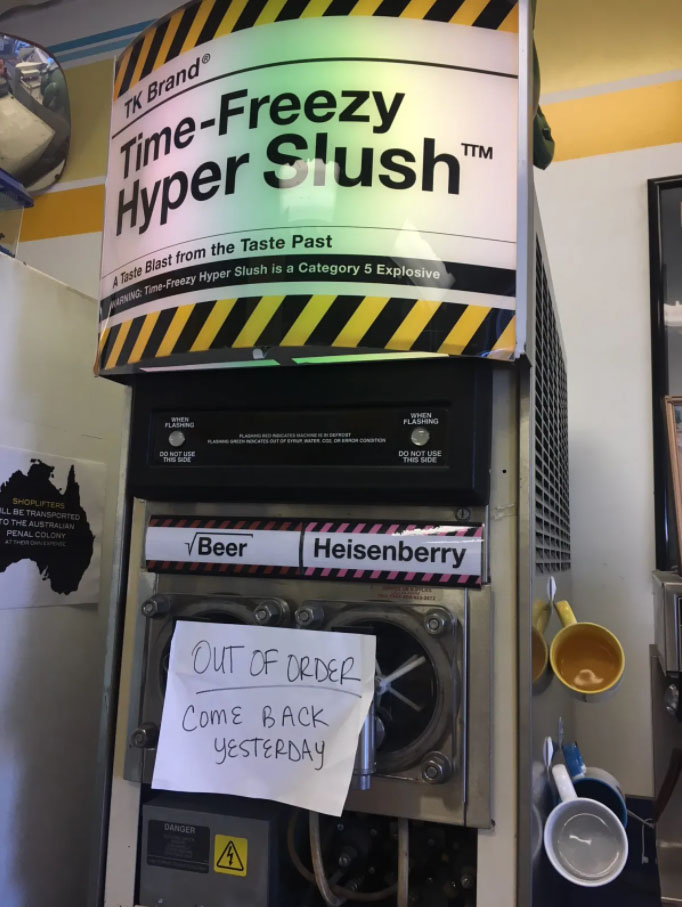 TK Brand®
Time-Freezy
Hyper Slush™
A Taste Blast from the Taste Past
WARNING: Time-Freezy Hyper Slush is a Category 5 Explosive
WHEN
FLASHING
DO NOT USE
THIS SIDE
FLASHING RED INDICATES MACHINE IS IN DEFROST
FLASHING GREEN INDICATES OUT OF SYRUP, WATER, CO2, OR ERROR CONDITION
WHEN
FLASHING
DO NOT USE
THIS SIDE
SHOPLIFTERS
ILL BE TRANSPORTED
TO THE AUSTRALIAN
PENAL COLONY
AT THEIR OWN EXPENSE
√Beer
Heisenberry
OUT OF ORDER
COME BACK
YESTERDAY
DANGER